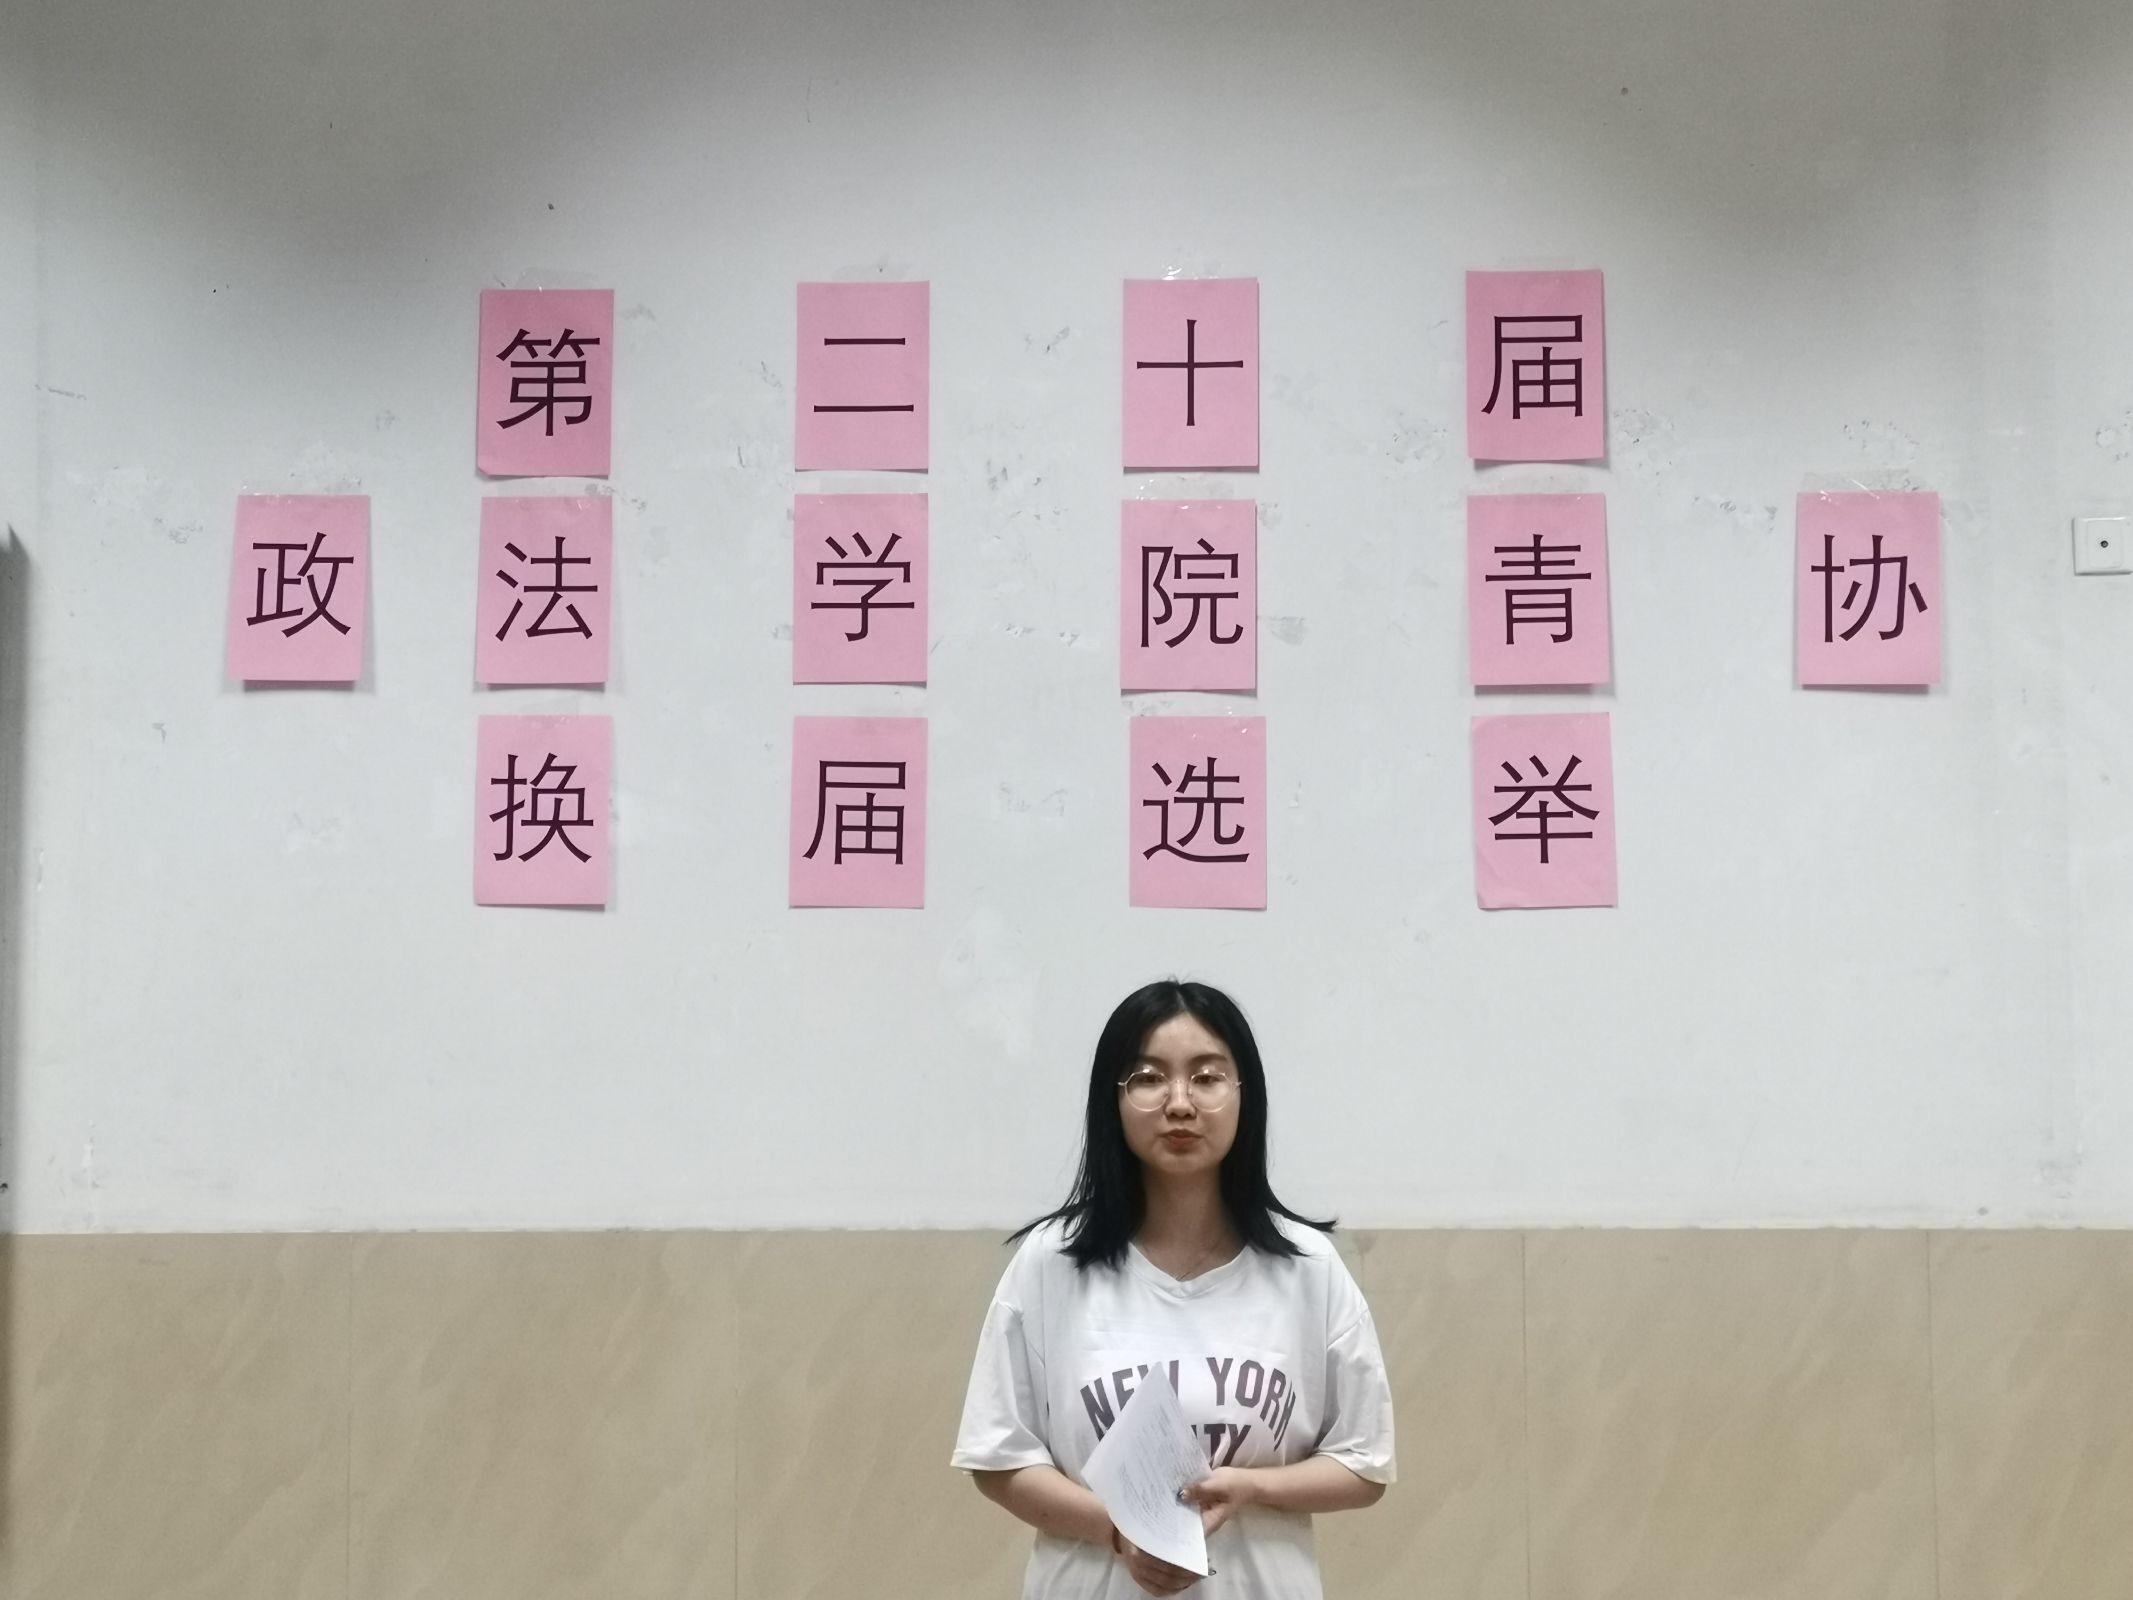 第二十届
政法学院青协
换届选举
NEW YORK